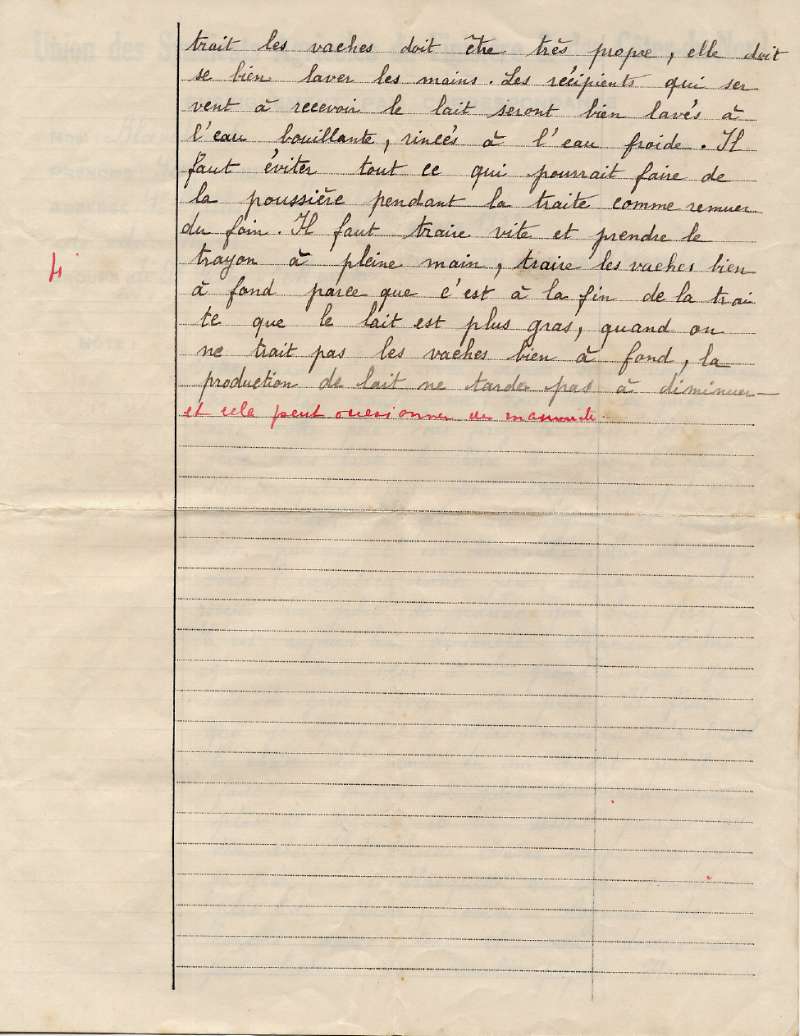 trait les vaches doit être très propre, elle doit
se bien laver les mains. Les récipients qui ser
vent à recevoir le lait seront bien lavés à
l'eau bouillante, rincés à l'eau froide. Il
faut éviter tout ce qui pourrait faire de
la poussière pendant la traite comme remuer
du foin. Il faut traire vite et prendre le
4
trayon à pleine main, traire les vaches bien
à fond parce que c'est à la fin de la trai
te que le lait est plus gras, quand on
ne trait pas les vaches bien à fond, la
production de lait ne tarde pas à diminuer
et cela peut occasionner